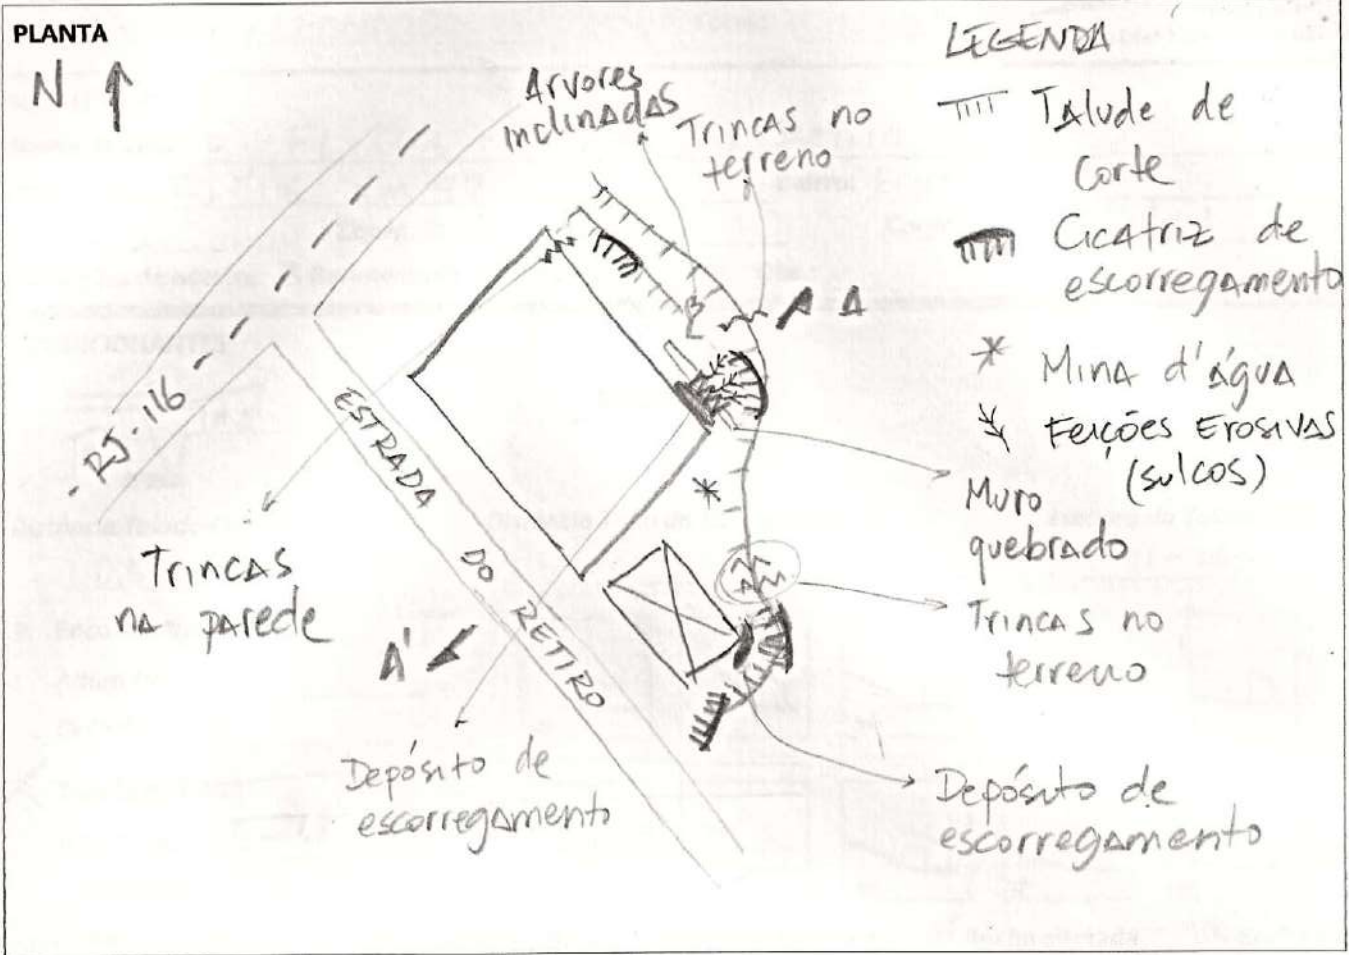 PLANTA
N
Arvores
inclinadas
Trincas no
terreno
LEGENDA
Talude de
corte
Cicatriz de
escorregamento
Mina d'água
Feições Erosivas
(sulcos)
A
RJ-116
ESTRADA
DO
RETIRO
Muro
quebrado
Trincas
na parede
Trincas no
terreno
A'
Depósito de
escorregamento
Depósito de
escorregamento